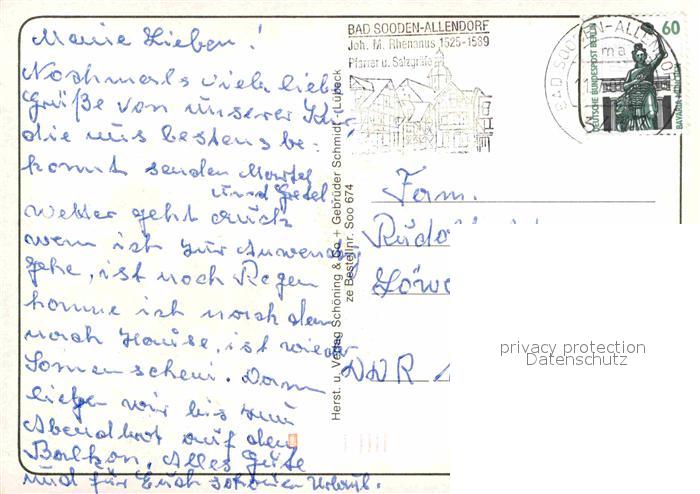 Meine Lieben!
Nochmals viele liebe
Grüße von unserer Kur
die uns bestens be-
kommt senden
und Gretel
Wetter geht auch
wenn ich zur Anwendung
gehe, ist noch Regen
komme ich nach dem
nach Hause, ist wieder
Sonnenschein. Dann
liegen wir bis zum
Abendbrot auf dem
Balkon. Alles Gute
und für Euch schönen Urlaub.
BAD SOODEN-ALLENDORF
Joh. M. Rhenanus 1525-1589
Pfarrer u. Salzgräfe
BAD SOODEN-ALLENDORF
ma
11
60
DEUTSCHE BUNDESPOST BERLIN
BAVARIA MÜNCHEN
Herst. u. Verlag Schöning & Co + Gebrüder Schmidt, Lübeck
ze Bestellnr. Soo 674
Fam.
Rudo
Löwe
DDR
privacy protection
Datenschutz